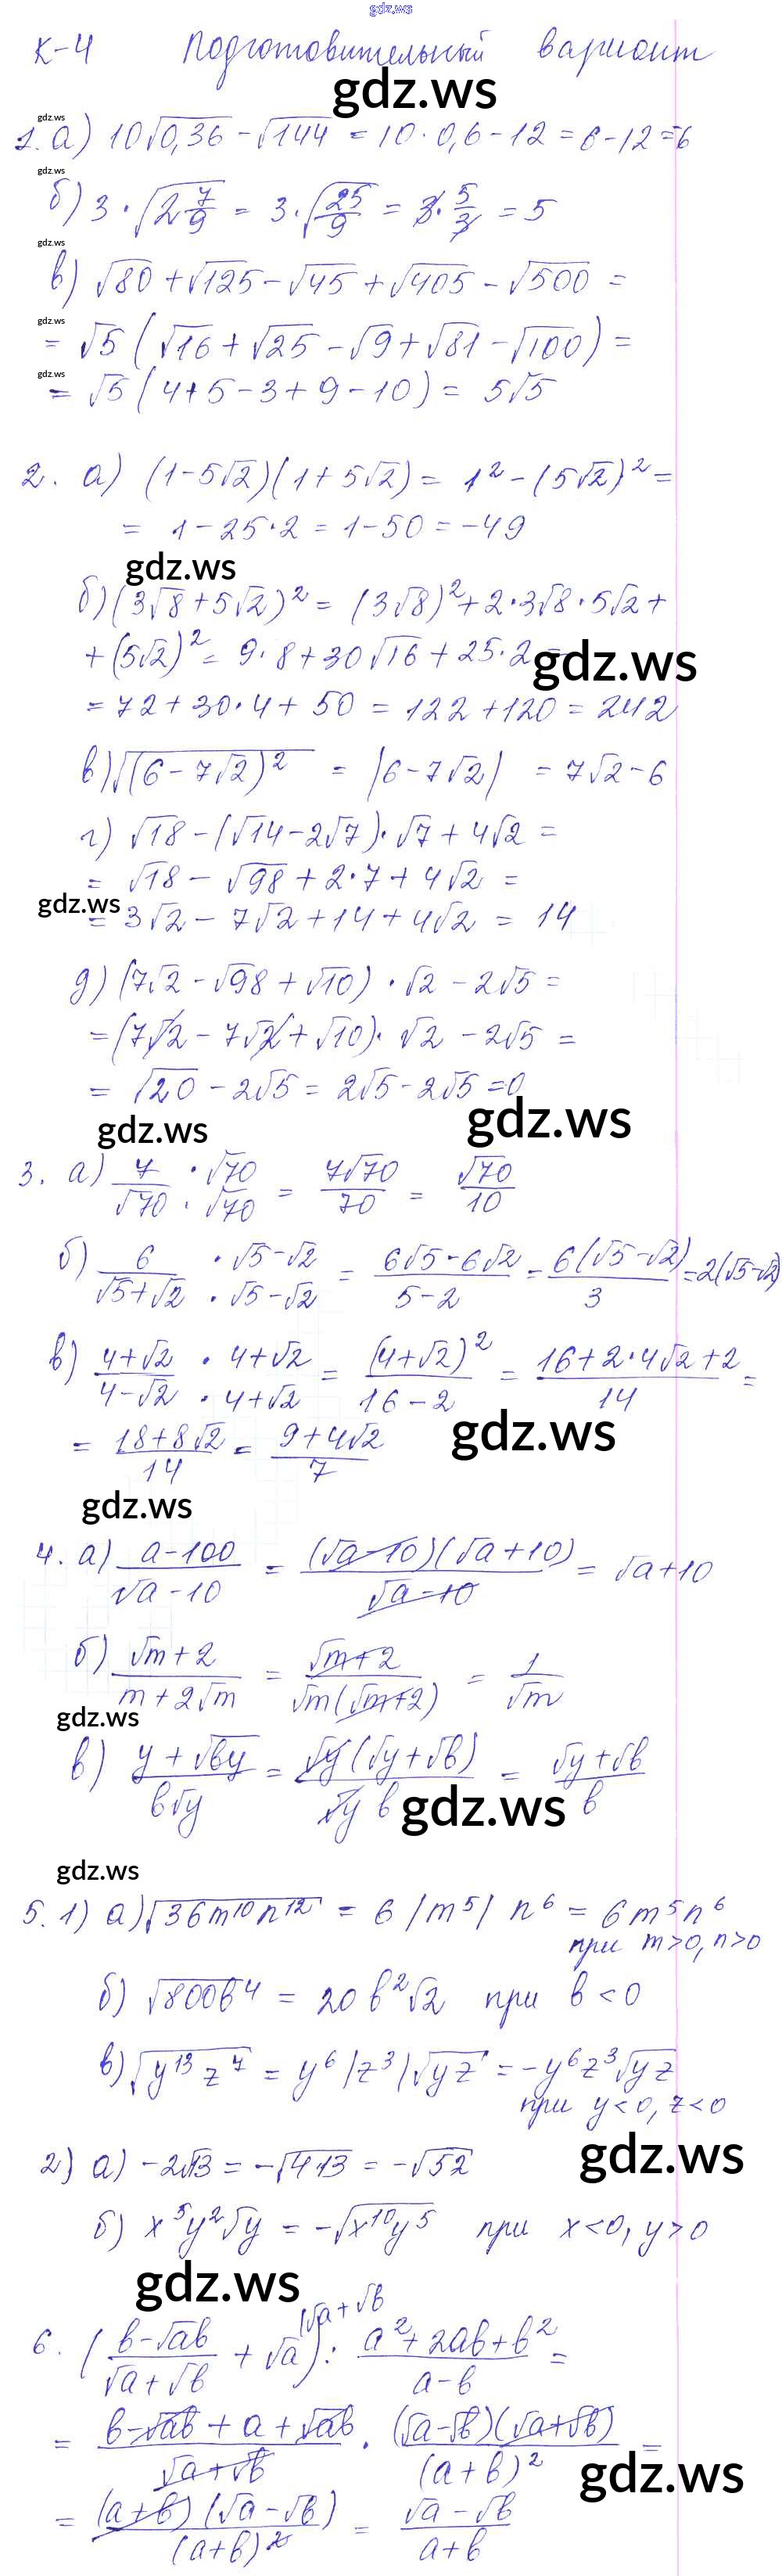 gdz.ws
К-4 Подготовительный вариант
gdz.ws
gdz.ws
1. а) 10√0,36 - √144 = 10 · 0,6 - 12 = 6 - 12 = -6
gdz.ws
б) 3 · √(2 7/9) = 3 · √(25/9) = 3 · 5/3 = 5
gdz.ws
в) √80 + √125 - √45 + √405 - √500 =
gdz.ws
= √5 (√16 + √25 - √9 + √81 - √100) =
gdz.ws
= √5 (4 + 5 - 3 + 9 - 10) = 5√5
2. а) (1 - 5√2)(1 + 5√2) = 1² - (5√2)² =
= 1 - 25 · 2 = 1 - 50 = -49
gdz.ws
б) (3√8 + 5√2)² = (3√8)² + 2 · 3√8 · 5√2 +
+ (5√2)² = 9 · 8 + 30√16 + 25 · 2 =
gdz.ws
= 72 + 30 · 4 + 50 = 122 + 120 = 242
в) √(6 - 7√2)² = |6 - 7√2| = 7√2 - 6
г) √18 - (√14 - 2√7) · √7 + 4√2 =
= √18 - √98 + 2 · 7 + 4√2 =
gdz.ws
= 3√2 - 7√2 + 14 + 4√2 = 14
д) (7√2 - √98 + √10) · √2 - 2√5 =
= (7√2 - 7√2 + √10) · √2 - 2√5 =
= √20 - 2√5 = 2√5 - 2√5 = 0
gdz.ws
gdz.ws
3. а) 7/√70 · √70/√70 = 7√70/70 = √70/10
б) 6/(√5 + √2) · (√5 - √2)/(√5 - √2) = (6√5 - 6√2)/(5 - 2) = 6(√5 - √2)/3 = 2(√5 - √2)
в) (4 + √2)/(4 - √2) · (4 + √2)/(4 + √2) = (4 + √2)²/(16 - 2) = (16 + 2 · 4√2 + 2)/14 =
= (18 + 8√2)/14 = (9 + 4√2)/7
gdz.ws
gdz.ws
4. а) (a - 100)/(√a - 10) = (√a - 10)(√a + 10)/(√a - 10) = √a + 10
б) (√m + 2)/(m + 2√m) = (√m + 2)/(√m(√m + 2)) = 1/√m
gdz.ws
в) (y + √by)/(b√y) = √y(√y + √b)/(√y b) = (√y + √b)/b
gdz.ws
gdz.ws
5. 1) а) √36m¹⁰n¹² = 6|m⁵|n⁶ = 6m⁵n⁶
при m>0, n>0
б) √800b⁴ = 20b²√2 при b<0
в) √y¹³z⁷ = y⁶|z³|√yz = -y⁶z³√yz
при y<0, z<0
gdz.ws
2) а) -2√13 = -√4·13 = -√52
б) x⁵y²√y = -√x¹⁰y⁵ при x<0, y>0
gdz.ws
6. ((b - √ab)/(√a + √b) + √a (√a + √b)) : (a² + 2ab + b²)/(a - b) =
= (b - √ab + a + √ab)/(√a + √b) · (√a - √b)(√a + √b)/(a + b)² =
gdz.ws
= (a + b)(√a - √b)/(a + b)² = (√a - √b)/(a + b)